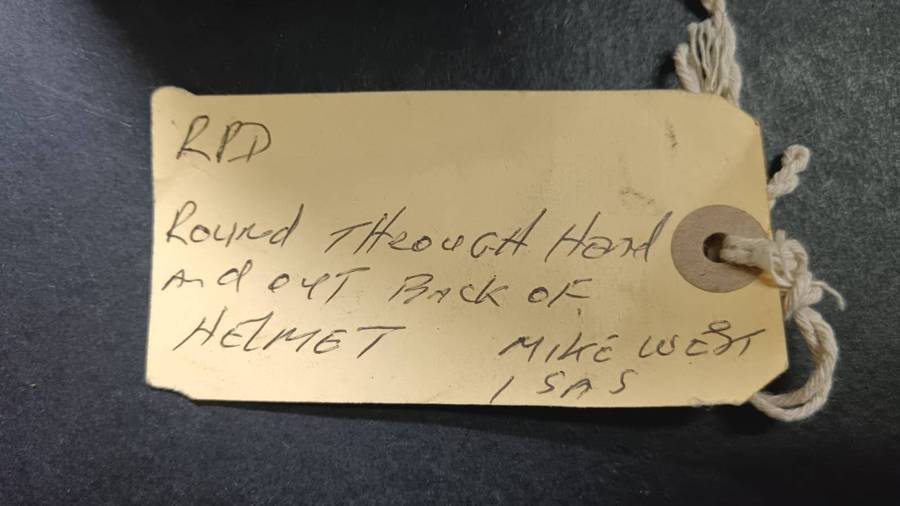 RPD
Round THROUGH Hand
And OUT BACK OF
HELMET MIKE WEST
1 SAS